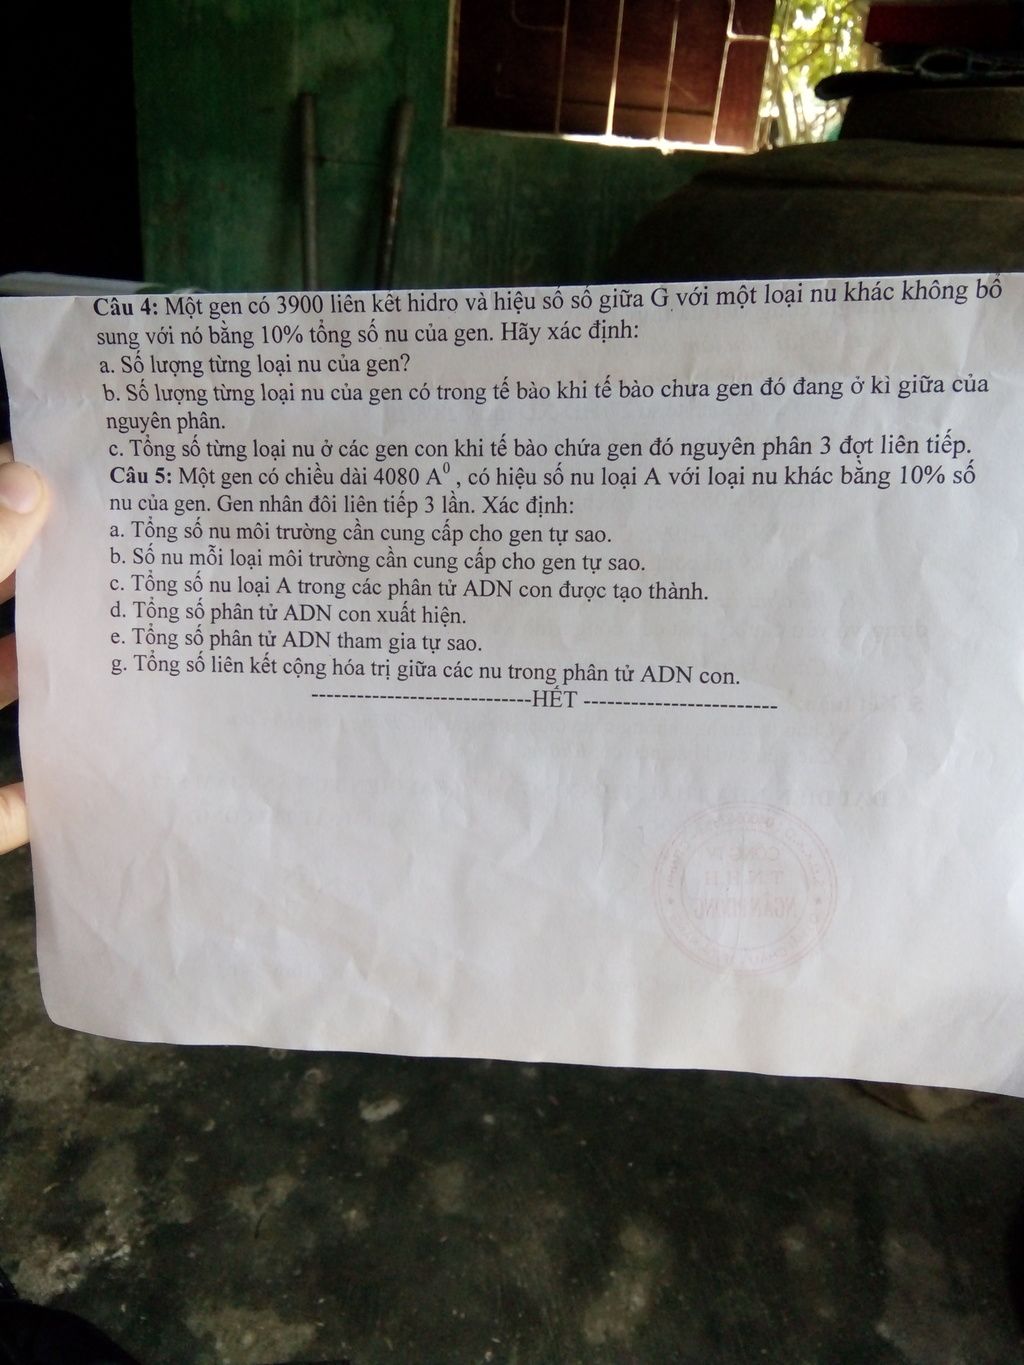 Câu 4: Một gen có 3900 liên kết hidro và hiệu số số giữa G với một loại nu khác không bổ
sung với nó bằng 10% tổng số nu của gen. Hãy xác định:
a. Số lượng từng loại nu của gen?
b. Số lượng từng loại nu của gen có trong tế bào khi tế bào chưa gen đó đang ở kì giữa của
nguyên phân.
c. Tổng số từng loại nu ở các gen con khi tế bào chứa gen đó nguyên phân 3 đợt liên tiếp.
Câu 5: Một gen có chiều dài 4080 A⁰ , có hiệu số nu loại A với loại nu khác bằng 10% số
nu của gen. Gen nhân đôi liên tiếp 3 lần. Xác định:
a. Tổng số nu môi trường cần cung cấp cho gen tự sao.
b. Số nu mỗi loại môi trường cần cung cấp cho gen tự sao.
c. Tổng số nu loại A trong các phân tử ADN con được tạo thành.
d. Tổng số phân tử ADN con xuất hiện.
e. Tổng số phân tử ADN tham gia tự sao.
g. Tổng số liên kết cộng hóa trị giữa các nu trong phân tử ADN con.
----------------------------HẾT -------------------------
CÔNG TY
T.N.H.H